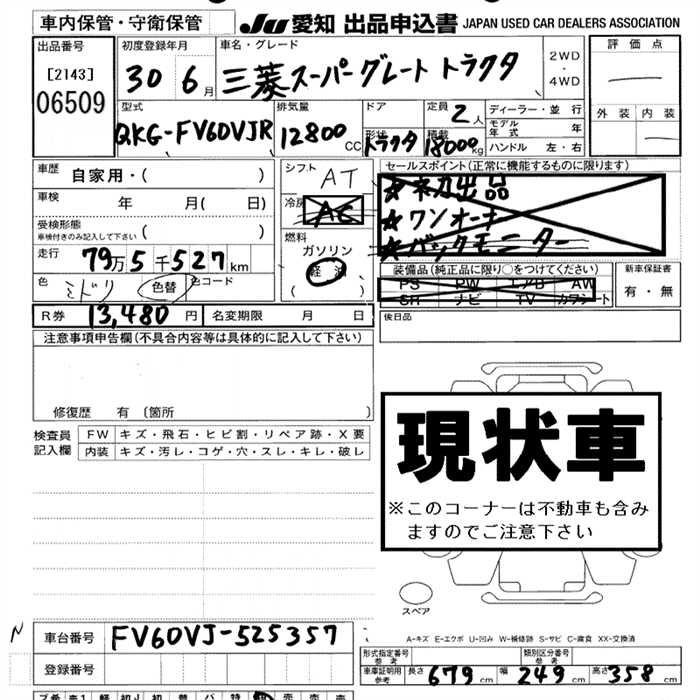 車内保管・守衛保管
JU 愛知 出品申込書 JAPAN USED CAR DEALERS ASSOCIATION
出品番号 初度登録年月 車名・グレード 2WD・4WD 評価点
[2143]
06509
30 6月 三菱スーパーグレート トラクタ
型式 排気量 ドア 定員 2人 ディーラー・並行 外装 内装
QKG-FV60VJR 12800cc 形状 トラクタ 積載 18000kg モデル年式 年
ハンドル 左・右
車歴 自家用・( ) シフト AT セールスポイント(正常に機能するものに限ります)
車検 年 月( 日) 冷房 AC ★ネカ出品
★ワンオーナ
受検形態 車検付きのみ記入して下さい ( ) 燃料 ★バックモニター
走行 79万5千527km ガソリン
軽油
( )
装備品(純品品に限り○をつけてください) 新車保証書
色 ミドリ 色替 色コード PS PW エアB AW 有・無
SR ナビ TV カワシート
R券 13,480円 名変期限 月 日 後日品
注意事項申告欄(不具合内容等は具体的に記入して下さい)
修復歴 有 〔箇所 〕
検査員記入欄 FW キズ・飛石・ヒビ割・リペア跡・X要
内装 キズ・汚レ・コゲ・穴・スレ・キレ・破レ
現状車
※このコーナーは不動車も含み
ますのでご注意下さい
スペア
N 車台番号 FV60VJ-525357
A-キズ E-エクボ U-凹み W-補修跡 S-サビ C-腐食 XX-交換済
登録番号 形式指定番号 参考 類別区分番号 参考
車庫証明用 参考 長さ 679cm 幅 249cm 高さ 358cm